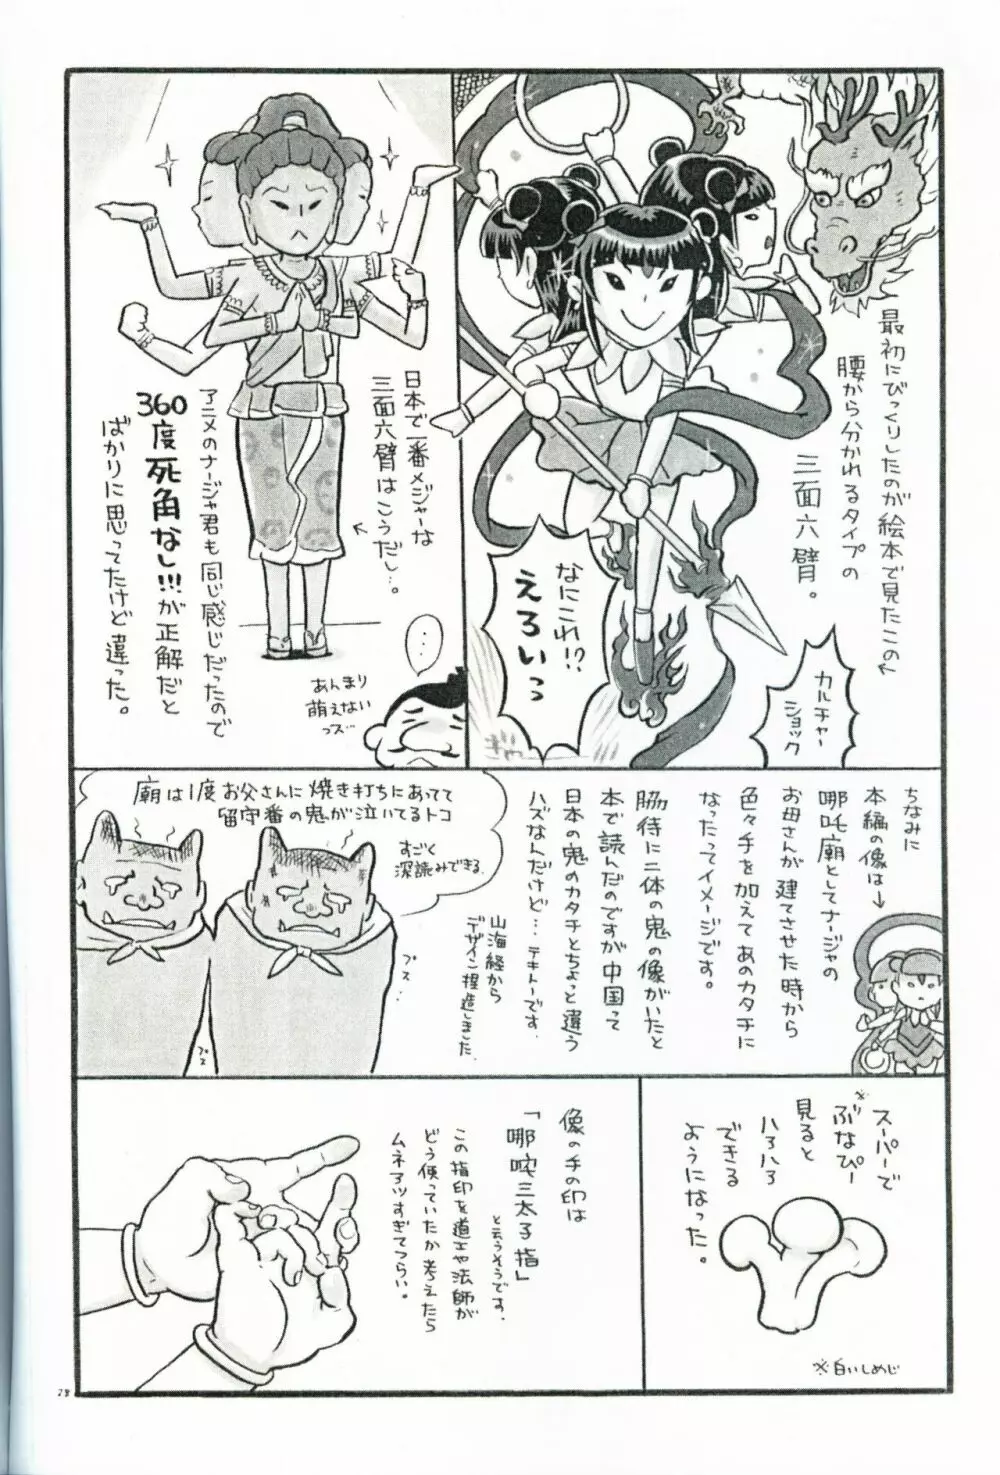 最初にびっくりしたのが絵本で見たこの←
腰から分かれるタイプの
三面六臂。
カルチャー
ショック
なにこれ!?
えろいっ
日本で一番メジャーな
三面六臂はこうだし…。
←
アニメのナージャ君も同じ感じだったので
360度死角なし!!!が正解だと
ばかりに思ってたけど違った。
…
あんまり
萌えない
っス…
ちなみに
本編の像は→
哪吒廟としてナージャの
お母さんが建てさせた時から
色々手を加えてあのカタチに
なったってイメージです。
脇待に二体の鬼の像がいたと
本で読んだのですが中国って
日本の鬼のカタチとちょっと違う
ハズなんだけど…テキトーです。
山海経から
デザイン捏造しました。
廟は1度お父さんに焼き打ちにあってて
留守番の鬼が泣いてるトコ
すごく
深読みできる。
ブス…
ブス
スーパーで
※ぶなぴー
見ると
ハァハァ
できる
ようになった。
※白いしめじ
像の手の印は
「哪吒三太子指」
と云うそうです。
この指印を道士や法師が
どう使っていたか考えたら
ムネアツすぎてつらい。
28